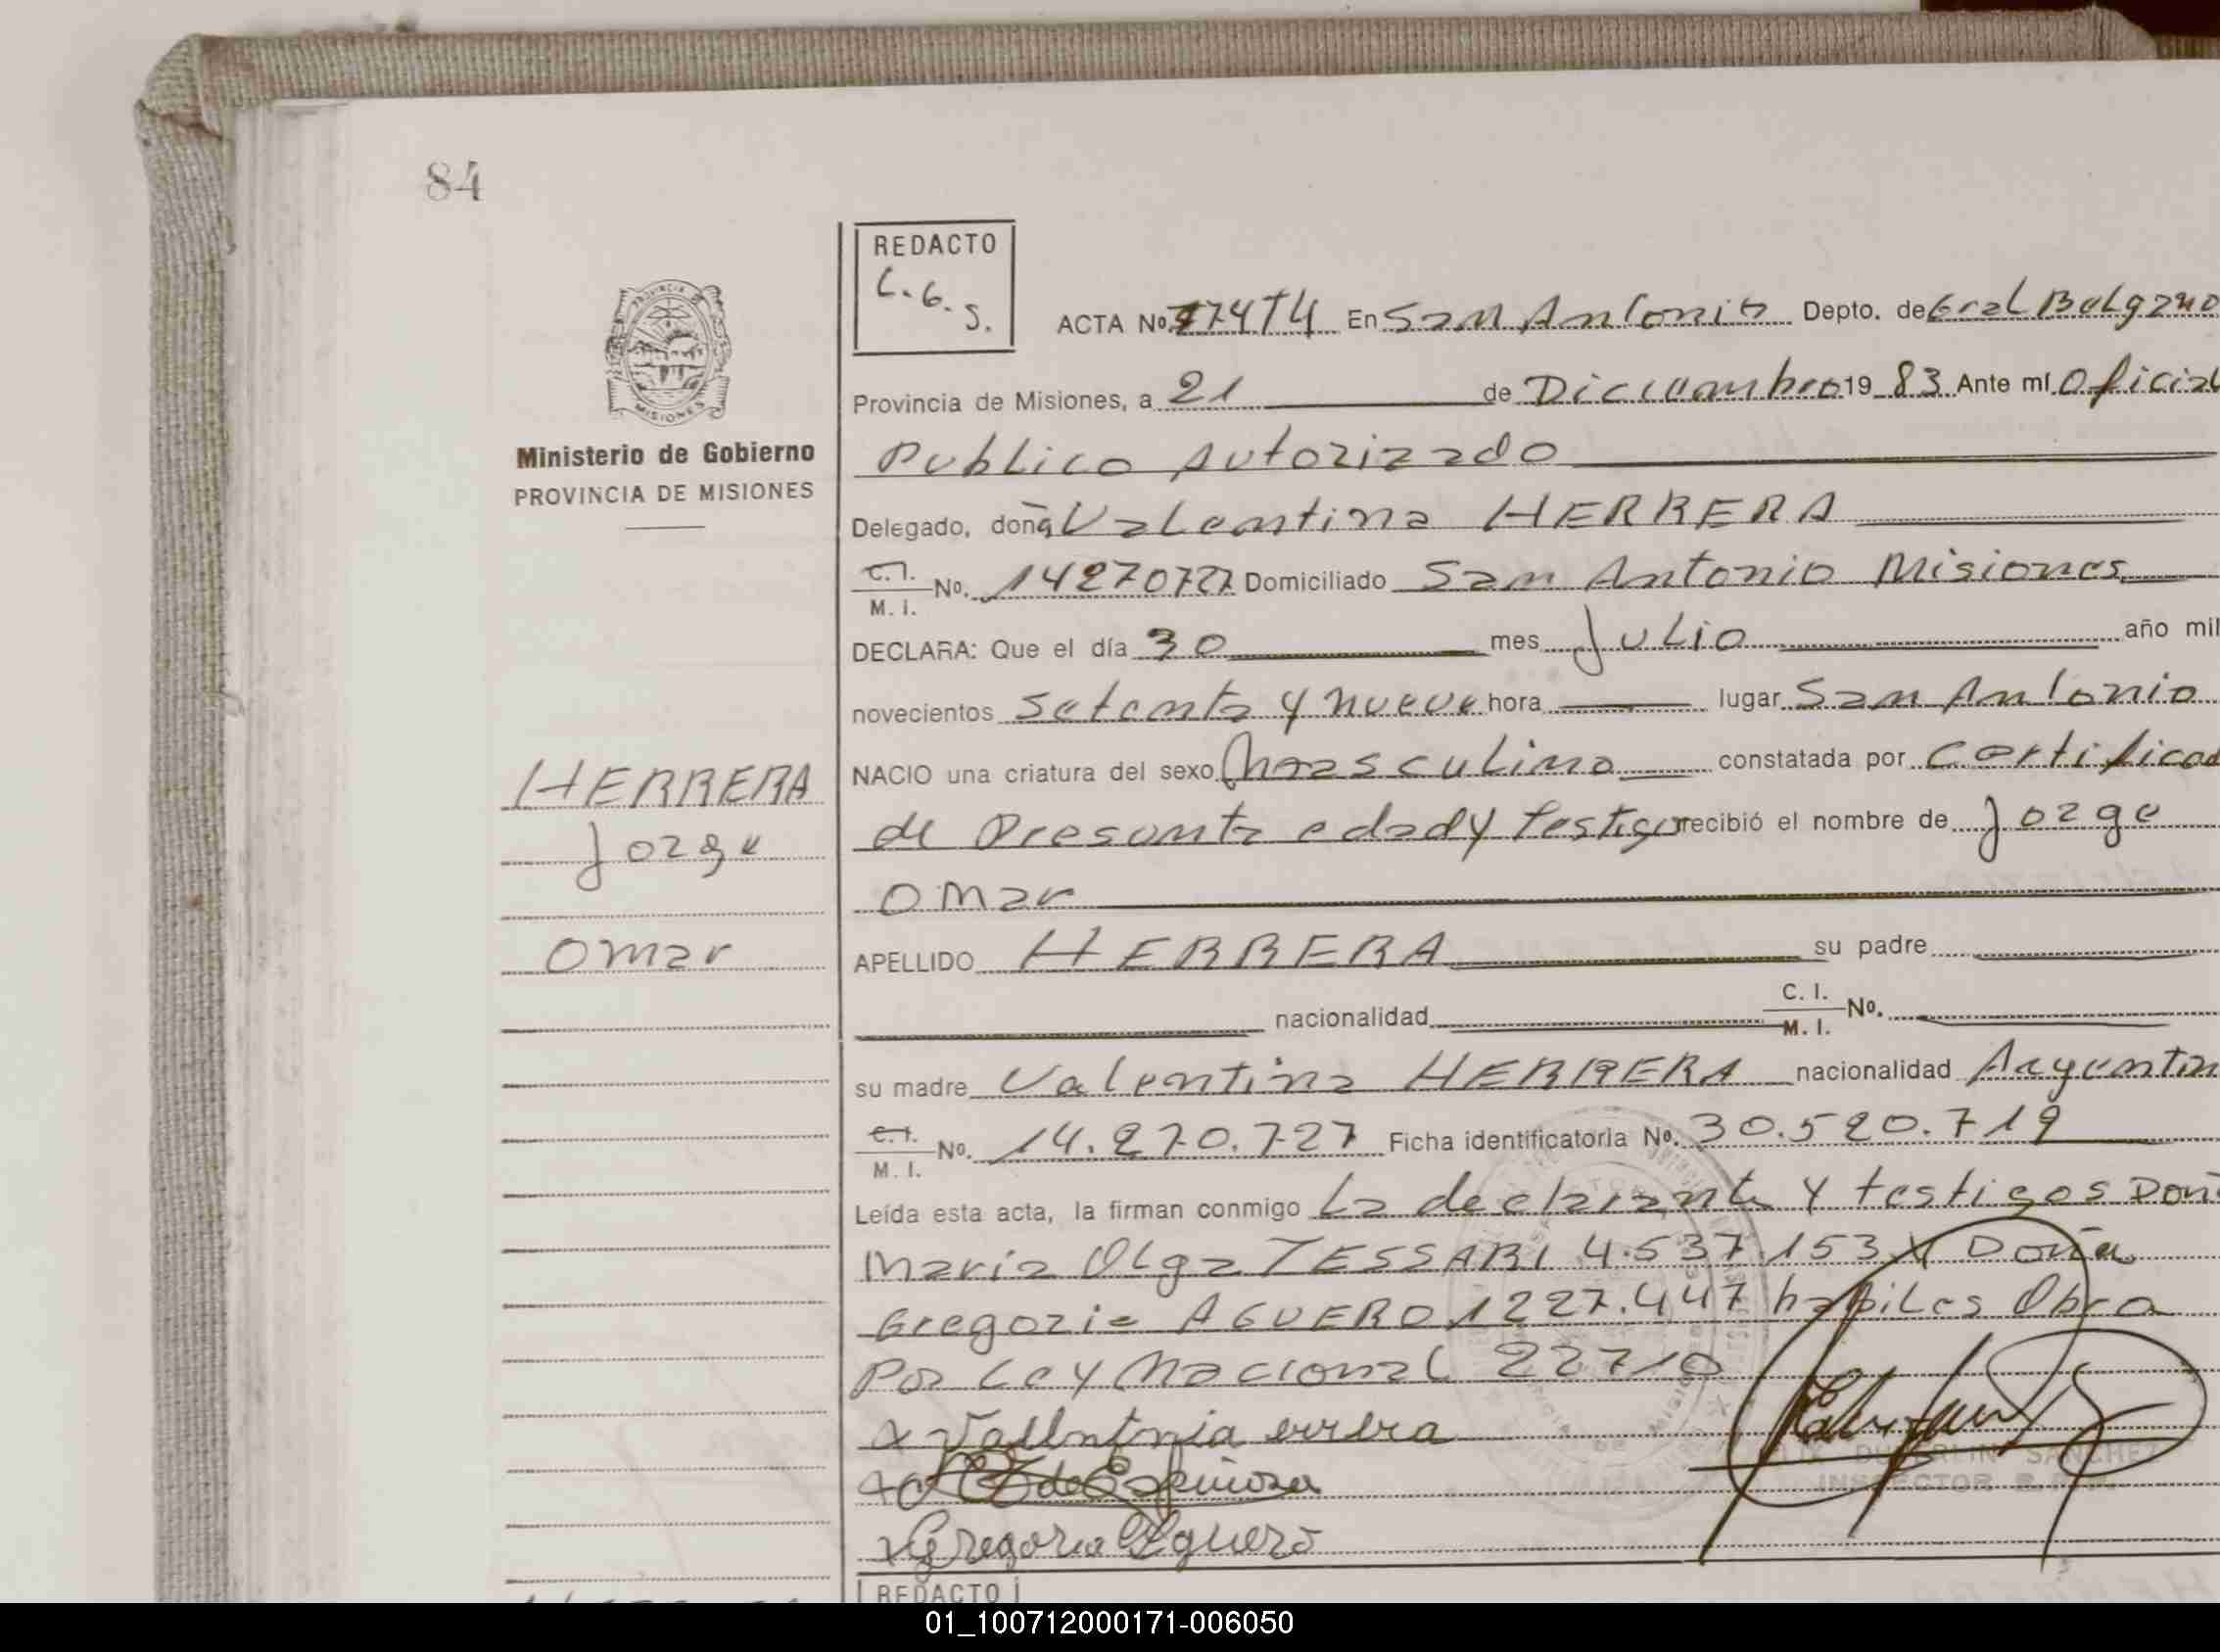 84
REDACTO
C.G.S.
PROVINCIA DE
MISIONES
Ministerio de Gobierno
PROVINCIA DE MISIONES
ACTA No. En San Antonio Depto. de Gral Belgrano
Provincia de Misiones, a 21 de Diciembre 19 83 Ante mí Oficial
Publico Autorizado
Delegado, doña Valentina HERRERA
C. I. / M. I. No. 14270727 Domiciliado San Antonio Misiones
DECLARA: Que el día 30 mes Julio año mil
novecientos Setenta y nueve hora lugar San Antonio
NACIO una criatura del sexo Masculino constatada por Certificad
de Presunta edad y testigo recibió el nombre de Jorge
Omar
APELLIDO HERRERA su padre
nacionalidad C. I. / M. I. No.
su madre Valentina HERRERA nacionalidad Argentin
C. I. / M. I. No. 14.270.727 Ficha identificatoria No. 30.520.719
Leída esta acta, la firman conmigo La declarante y testigos Doñ
Maria Olga TESSARI 4.537.153 y Doña
Gregoria AGUERO 1227.447 habiles Obra
Por Ley Nacional 22710
x Vallntnia errera
de Espinosa
x Gregoria Aguero
SANCHEZ
INSPECTOR
HERRERA
Jorge
Omar
REDACTO
01_100712000171-006050